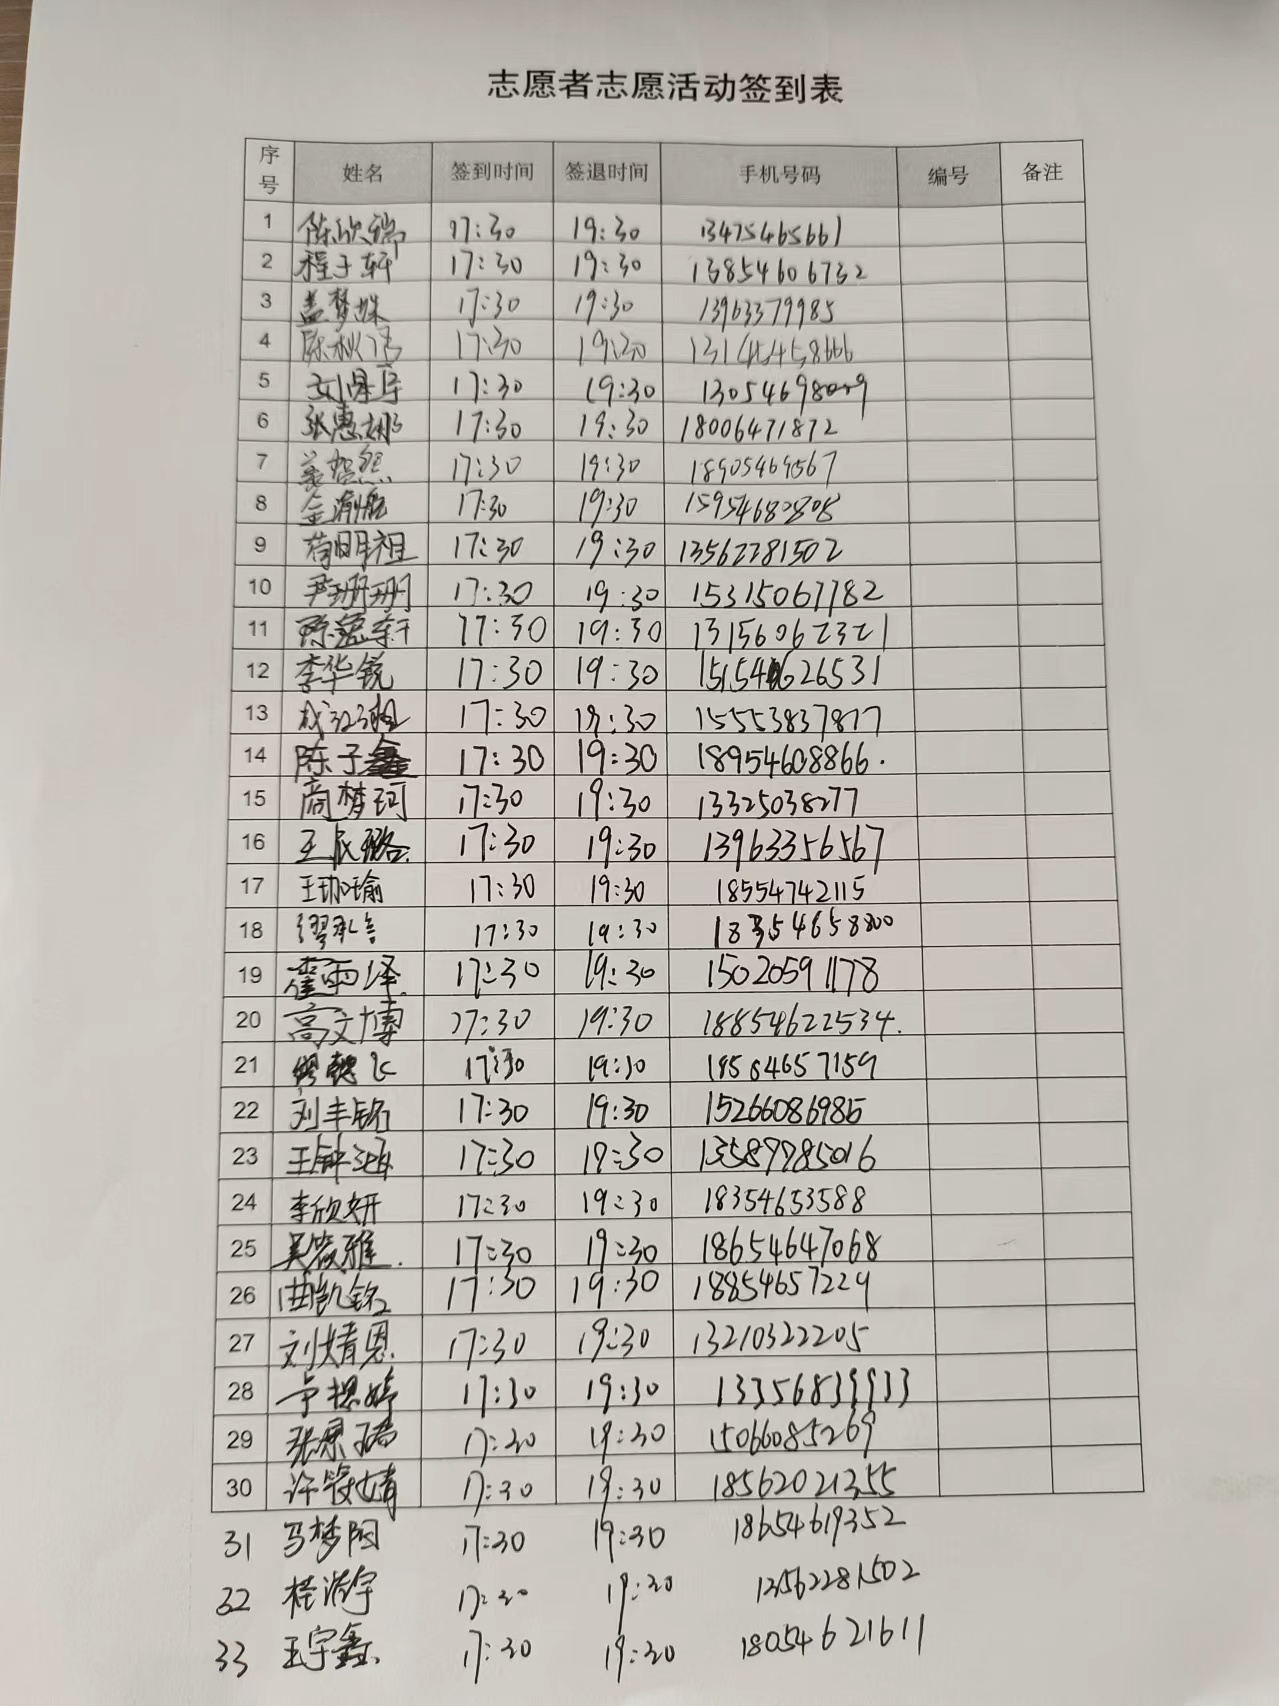 志愿者志愿活动签到表
序号 姓名 签到时间 签退时间 手机号码 编号 备注
1 陈欣瑞 17:30 19:30 13475465661
2 程子轩 17:30 19:30 13854606732
3 盖梦姝 17:30 19:30 13963379985
4 17:30 19:30
5 17:30 19:30
6 张惠娜 17:30 19:30 18006471872
7 17:30 19:30 18905469567
8 17:30 19:30
9 荷明祖 17:30 19:30 13562281502
10 尹珊珊 17:30 19:30 15315067782
11 17:30 19:30 13156062321
12 李华锐 17:30 19:30 15154626531
13 17:30 19:30 15553837877
14 陈子鑫 17:30 19:30 18954608866.
15 商梦珂 17:30 19:30 13325038277
16 17:30 19:30 13963356567
17 王珈瑜 17:30 19:30 18554742115
18 17:30 19:30 18354658800
19 霍雨泽 17:30 19:30 15020591178
20 高文博 17:30 19:30 18854622534.
21 17:30 19:30 18504657159
22 刘丰铭 17:30 19:30 15266086985
23 17:30 19:30 13589985016
24 李欣妍 17:30 19:30 18354653588
25 吴筱雅. 17:30 19:30 18654647068
26 曲凯铭 17:30 19:30 18854657229
27 刘婧恩. 17:30 19:30 13210322205
28 17:30 19:30 13356839933
29 17:30 19:30 15066085269
30 许筱婧 17:30 19:30 18562021355
31 马梦阳 17:30 19:30 18654619352
32 桂浩宇 17:30 19:30 13562281502
33 王宇鑫 17:30 19:30 18054621611